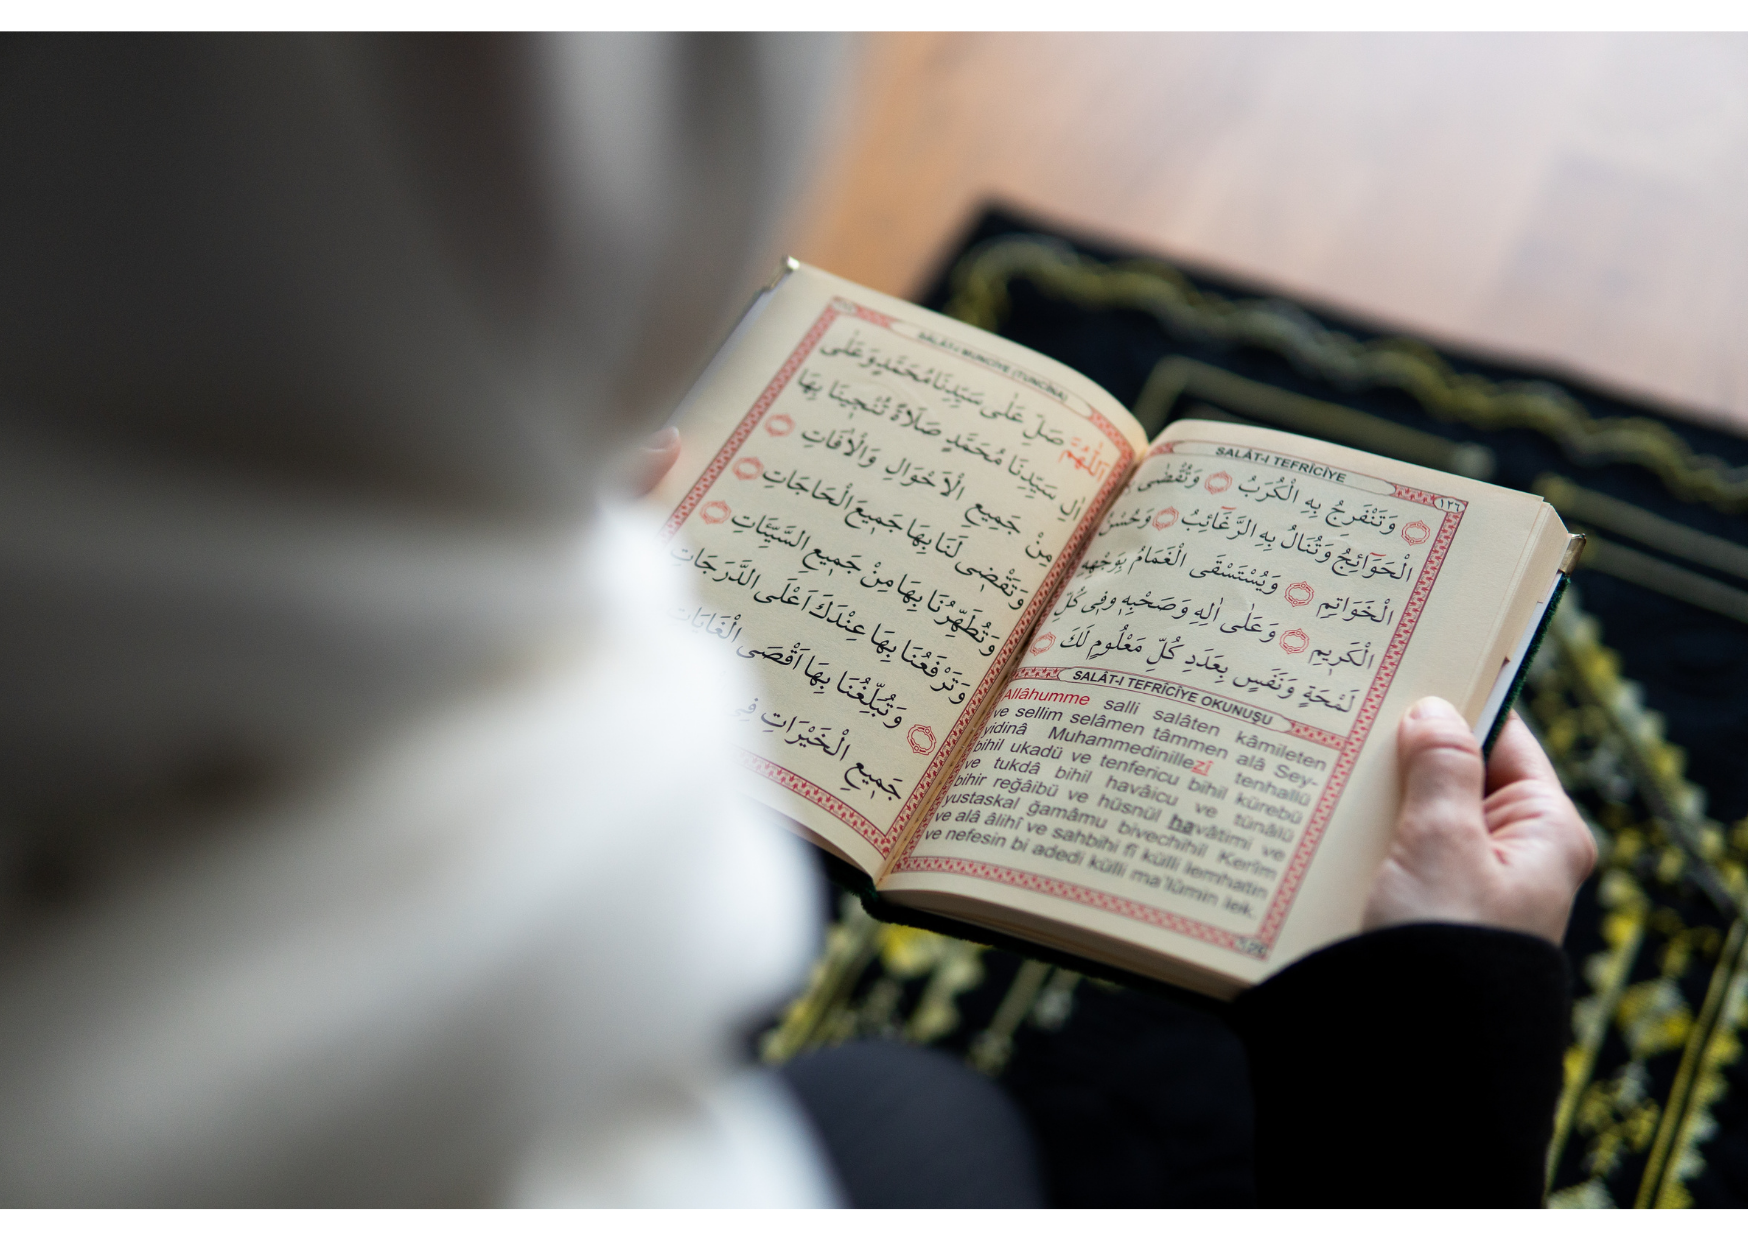 SALÂT-I TEFRÎCİYE ١٢٦
وَتَنْفَرِجُ بِهِ الْكُرَبُ وَتُقْضٰى
الْحَوَٓائِجُ وَتُنَالُ بِهِ الرَّغَٓائِبُ وَحُسْنُ
الْخَوَاتِمِ وَيُسْتَسْقَى الْغَمَامُ بِوَجْهِهِ
الْكَرِيمِ وَعَلٰى اٰلِهِ وَصَحْبِهِ وَفِى كُلِّ
لَمْحَةٍ وَنَفَسٍ بِعَدَدِ كُلِّ مَعْلُومٍ لَكَ
SALÂT-I TEFRÎCİYE OKUNUŞU
Allâhumme salli salâten kâmileten
ve sellim selâmen tâmmen alâ Sey-
yidinâ Muhammedinillezî tenhallü
bihil ukadü ve tenfericu bihil kürebü
ve tukdâ bihil havâicu ve tünâlü
bihir reğâibü ve hüsnül havâtimi ve
yustaskal ğamâmu bivechihil Kerîm
ve alâ âlihî ve sahbihi fî külli lemhatin
ve nefesin bi adedi külli ma'lûmin lek.
SALÂT-I MÜNCİYE (TÜNCÎNA)
اَللّٰهُمَّ صَلِّ عَلٰى سَيِّدِنَا مُحَمَّدٍ وَعَلٰٓى
اٰلِ سَيِّدِنَا مُحَمَّدٍ صَلَاةً تُنْجِينَا بِهَا
مِنْ جَمِيعِ الْاَحْوَالِ وَالْاٰفَاتِ
وَتَقْضِى لَنَا بِهَا جَمِيعَ الْحَاجَاتِ
وَتُطَهِّرُنَا بِهَا مِنْ جَمِيعِ السَّيِّئَاتِ
وَتَرْفَعُنَا بِهَا عِنْدَكَ اَعْلَى الدَّرَجَاتِ
وَتُبَلِّغُنَا بِهَا اَقْصَى الْغَايَاتِ
جَمِيعِ الْخَيْرَاتِ فِى